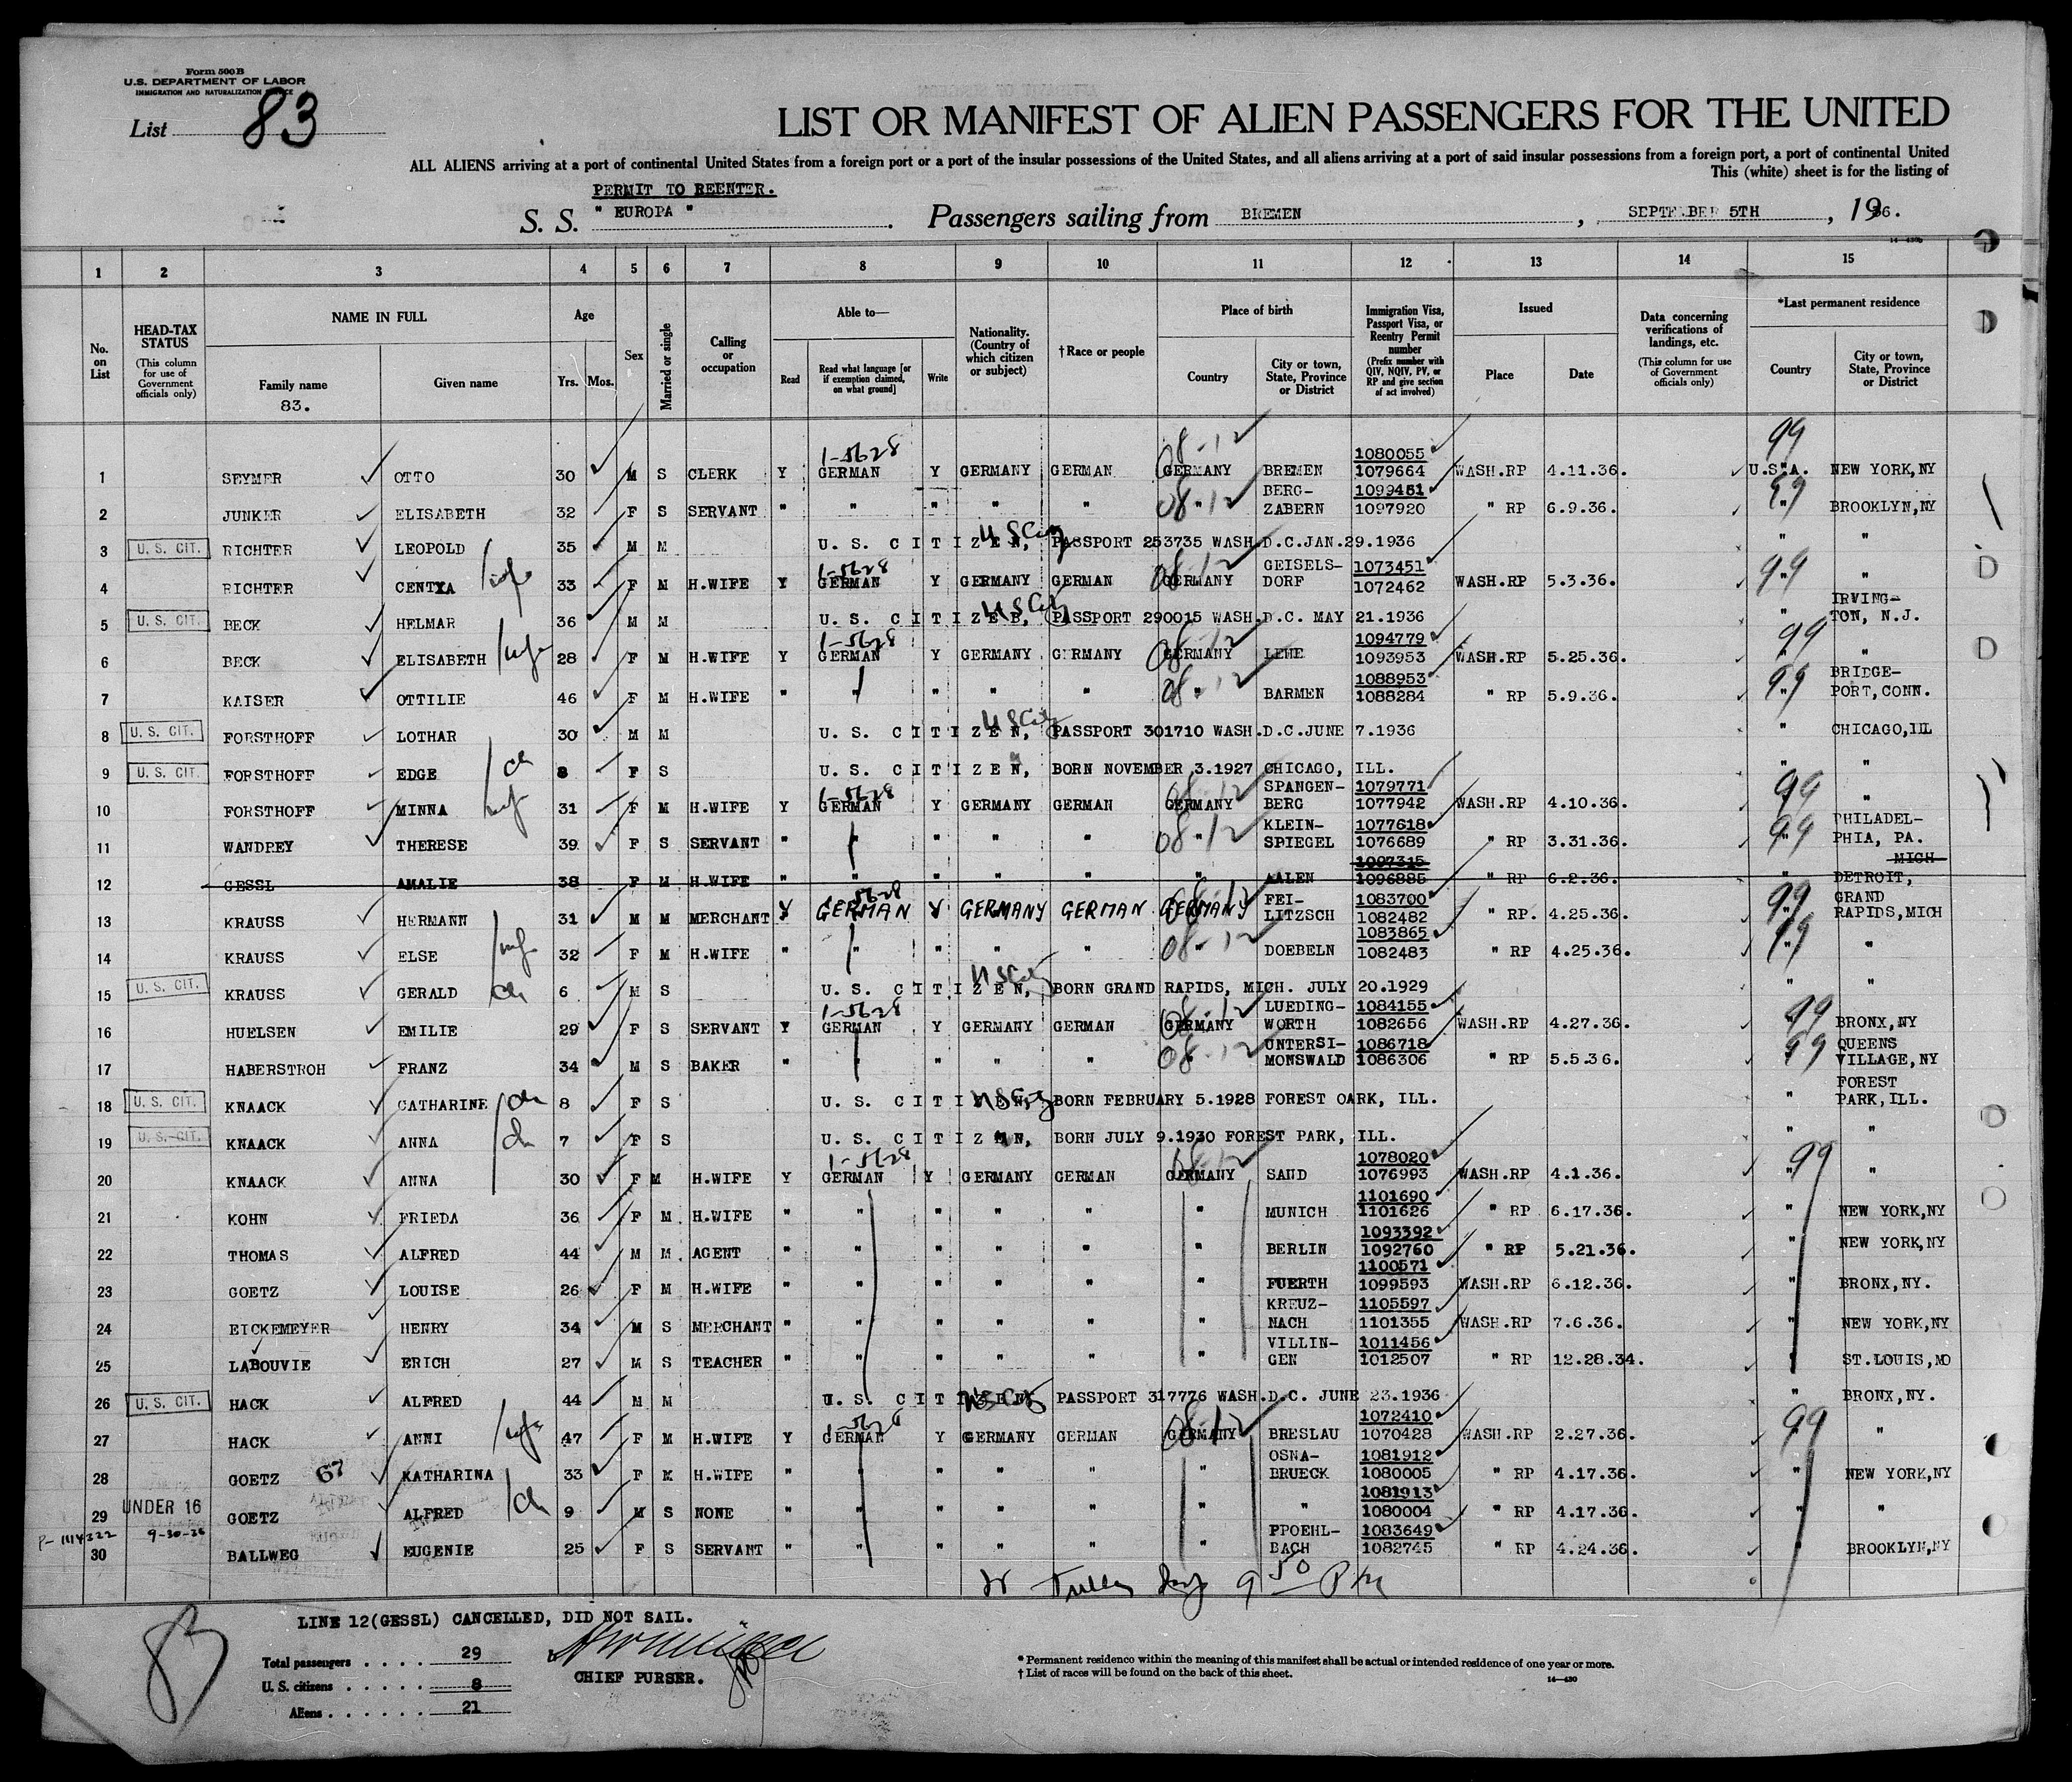 Form 500 B
U.S. DEPARTMENT OF LABOR
IMMIGRATION AND NATURALIZATION SERVICE
List 83
LIST OR MANIFEST OF ALIEN PASSENGERS FOR THE UNITED
ALL ALIENS arriving at a port of continental United States from a foreign port or a port of the insular possessions of the United States, and all aliens arriving at a port of said insular possessions from a foreign port, a port of continental United
This (white) sheet is for the listing of
PERMIT TO REENTER.
S. S. " EUROPA " . Passengers sailing from BREMEN , SEPTEMBER 5TH , 1936.
14—430b
1 2 3 4 5 6 7 8 9 10 11 12 13 14 15
No. on List
HEAD-TAX STATUS (This column for use of Government officials only)
NAME IN FULL Family name Given name
83.
Age Yrs. Mos.
Sex
Married or single
Calling or occupation
Able to— Read Read what language [or if exemption claimed, on what ground] Write
Nationality. (Country of which citizen or subject)
†Race or people
Place of birth Country City or town, State, Province or District
Immigration Visa, Passport Visa, or Reentry Permit number (Prefix number with QIV, NQIV, PV, or RP and give section of act involved)
Issued Place Date
Data concerning verifications of landings, etc. (This column for use of Government officials only)
*Last permanent residence Country City or town, State, Province or District
1-5628 08-12 1080055 99
1 SEYMER OTTO 30 M S CLERK Y GERMAN Y GERMANY GERMAN GERMANY BREMEN 1079664 WASH.RP 4.11.36. U.S.A. NEW YORK,NY
BERG- 1099451 99
2 JUNKER ELISABETH 32 F S SERVANT " " " " " 08-12 " ZABERN 1097920 " RP 6.9.36. " BROOKLYN,NY
3 U. S. CIT. RICHTER LEOPOLD 35 M M U. S. CITIZEN, PASSPORT 253735 WASH.D.C.JAN.29.1936 " "
1-5628 08-12 GEISELS- 1073451 99
4 RICHTER CENTXA wife 33 F M H.WIFE Y GERMAN Y GERMANY GERMAN GERMANY DORF 1072462 WASH.RP 5.3.36. " "
IRVING-
5 U. S. CIT. BECK HELMAR 36 M M U. S. CITIZEN, PASSPORT 290015 WASH.D.C. MAY 21.1936 " TON, N.J.
1-5628 08-12 1094779 99
6 BECK ELISABETH wife 28 F M H.WIFE Y GERMAN Y GERMANY GERMANY GERMANY LEHE 1093953 WASH.RP 5.25.36. " "
1088953 99 BRIDGE-
7 KAISER OTTILIE 46 F M H.WIFE " " " " " 08-12 " BARMEN 1088284 " RP 5.9.36. " PORT,CONN.
8 U. S. CIT. FORSTHOFF LOTHAR 30 M M U. S. CITIZEN, PASSPORT 301710 WASH.D.C.JUNE 7.1936 " CHICAGO,ILL
9 U. S. CIT. FORSTHOFF EDGE ch 8 F S U. S. CITIZEN, BORN NOVEMBER 3.1927 CHICAGO, ILL. " "
1-5628 08-12 SPANGEN- 1079771 99
10 FORSTHOFF MINNA wife 31 F M H.WIFE Y GERMAN Y GERMANY GERMAN GERMANY BERG 1077942 WASH.RP 4.10.36. " "
KLEIN- 1077618 99 PHILADEL-
11 WANDREY THERESE 39 F S SERVANT " " " " " 08-12 " SPIEGEL 1076689 " RP 3.31.36. " PHIA, PA.
1097315 MICH
12 GESSL AMALIE 38 F M H.WIFE " " " " " " AALEN 1096885 " RP 6.2.36. " DETROIT,
5628 08-12 FEI- 1083700 99 GRAND
13 KRAUSS HERMANN 31 M M MERCHANT Y GERMAN Y GERMANY GERMAN GERMANY LITZSCH 1082482 " RP. 4.25.36. " RAPIDS,MICH
1083865 99
14 KRAUSS ELSE wife 32 F M H.WIFE " " " " " 08-12 " DOEBELN 1082483 " RP 4.25.36. " "
15 U. S. CIT. KRAUSS GERALD ch 6 M S U. S. CITIZEN, BORN GRAND RAPIDS, MICH. JULY 20.1929 " "
1-5628 08-12 LUEDING- 1084155 99
16 HUELSEN EMILIE 29 F S SERVANT Y GERMAN Y GERMANY GERMAN GERMANY WORTH 1082656 WASH.RP 4.27.36. " BRONX,NY
UNTERSI- 1086718 99 QUEENS
17 HABERSTROH FRANZ 34 M S BAKER " " " " " 08-12 " MONSWALD 1086306 " RP 5.5.36. " VILLAGE,NY
FOREST
18 U. S. CIT. KNAACK CATHARINE ch 8 F S U. S. CITIZEN, BORN FEBRUARY 5.1928 FOREST OARK, ILL. " PARK,ILL.
19 U. S. CIT. KNAACK ANNA ch 7 F S U. S. CITIZEN, BORN JULY 9.1930 FOREST PARK, ILL. " "
1-5628 08-12 1078020 99
20 KNAACK ANNA 30 F M H.WIFE Y GERMAN Y GERMANY GERMAN GERMANY SAND 1076993 WASH.RP 4.1.36. " "
1101690
21 KOHN FRIEDA 36 F M H.WIFE " " " " " " MUNICH 1101626 " RP 6.17.36. " NEW YORK,NY
1093392
22 THOMAS ALFRED 44 M M AGENT " " " " " " BERLIN 1092760 " RP 5.21.36. " NEW YORK,NY
1100571
23 GOETZ LOUISE 26 F M H.WIFE " " " " " " FUERTH 1099593 WASH.RP 6.12.36. " BRONX,NY.
KREUZ- 1105597
24 EICKEMEYER HENRY 34 M S MERCHANT " " " " " " NACH 1101355 WASH.RP 7.6.36. " NEW YORK,NY
VILLIN- 1011456
25 LABOUVIE ERICH 27 M S TEACHER " " " " " " GEN 1012507 " RP 12.28.34. " ST.LOUIS,MO
26 U. S. CIT. HACK ALFRED 44 M M U. S. CITIZEN, PASSPORT 317776 WASH.D.C. JUNE 23.1936 " BRONX,NY.
1-5628 08-12 1072410 99
27 HACK ANNI wife 47 F M H.WIFE Y GERMAN Y GERMANY GERMAN GERMANY BRESLAU 1070428 WASH.RP 2.27.36. " "
OSNA- 1081912
28 GOETZ 67 KATHARINA 33 F M H.WIFE " " " " " " BRUECK 1080005 " RP 4.17.36. " NEW YORK,NY
1081913
29 UNDER 16 GOETZ ALFRED ch 9 M S NONE " " " " " " " 1080004 " RP 4.17.36. " "
P-1114322 9-30-36 PPOEHL- 1083649
30 BALLWEG EUGENIE 25 F S SERVANT " " " " " " BACH 1082745 " RP 4.24.36. " BROOKLYN,NY
9 50 PM
83
LINE 12(GESSL) CANCELLED, DID NOT SAIL.
Total passengers . . . . 29
U. S. citizens . . . . . 8
Aliens . . . . . . 21
CHIEF PURSER.
* Permanent residence within the meaning of this manifest shall be actual or intended residence of one year or more.
† List of races will be found on the back of this sheet.
14—430